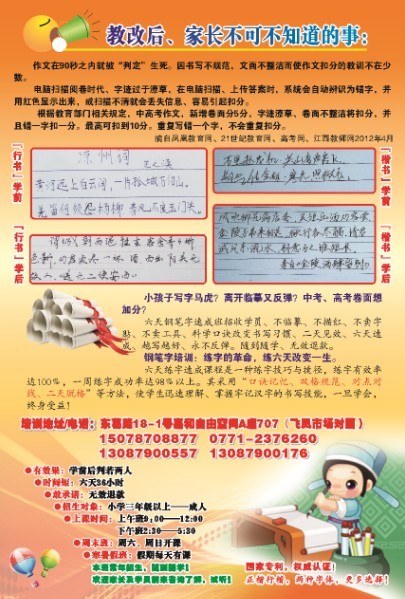 教改后、家长不可不知道的事:
作文在90秒之内就被“判定”生死。因书写不规范、文面不整洁而使作文扣分的教训不在少
数。
电脑扫描阅卷时代、字迹过于潦草，在电脑扫描、上传答案时，系统会自动辨识为错字，并
用红色显示出来，或扫描不清就会丢失信息、容易引起扣分。
根据教育部门相关规定，中高考作文，新增卷面分5分，字迹潦草，卷面不整洁将扣分、并
且错一字扣一分。最高可扣到10分。重复写错一个字，不会重复扣分。
摘自凤凰教育网、21世纪教育网、高考网、江西教师网2012年4月
「行书」学前
凉州词
王之涣
黄河远上白云间，一片孤城万仞山。
羌笛何须怨杨柳，春风不度玉门关。
「楷书」学前
「行书」学后
「楷书」学后
小孩子写字马虎？离开临摹又反弹？中考、高考卷面想
加分？
六天钢笔字速成班招收学员、不临摹、不描红、不卖字
贴、不卖工具、科学口诀改变书写习惯、二天见效、六天速
成、越写越好、永不反弹。随到随学、无效退款。
钢笔字培训：练字的革命，练六天改变一生。
六天练字速成课程是一种练字技巧与捷径，练字有效率
达100%，一周练字成功率达98%以上。其采用“口诀记忆、双格规范、对点对
线、二天脱格”等方法，使学生迅速理解、掌握牢记汉字的书写技能，一旦学会，
终身受益！
培训地址/电话：东葛路18-1号嘉和自由空间A座707（飞凤市场对面）
15078708877 0771-2376260
13087900557 13087900176
●有效果：学前学后判若两人
●时间短：六天36小时
●敢承诺：无效退款
●招生对象：小学三年级以上——成人
●上课时间：上午班9:00——12:00
下午班2:30——5:30
●周末班：周六、周日开课
●寒暑假班：假期每天有课
本班常年招生，随到随学！
欢迎家长及学员前来咨询了解，试听！
国家专利，权威认证！
正楷行楷，两种字体，更多选择！